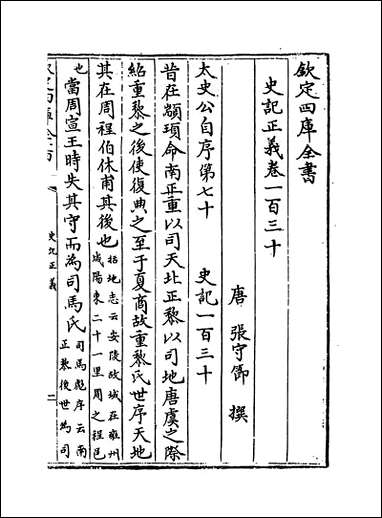 欽定四庫全書
史記正義卷一百三十
唐 張守節 撰
太史公自序第七十 史記一百三十
昔在顓頊命南正重以司天北正黎以司地唐虞之際
紹重黎之後使復典之至于夏商故重黎氏世序天地
其在周程伯休甫其後也括地志云安陵故城在雍州
咸陽東二十一里周之程邑
也當周宣王時失其守而為司馬氏司馬彪序云南
正黎後世為司
欽定四庫全書
史記正義
二